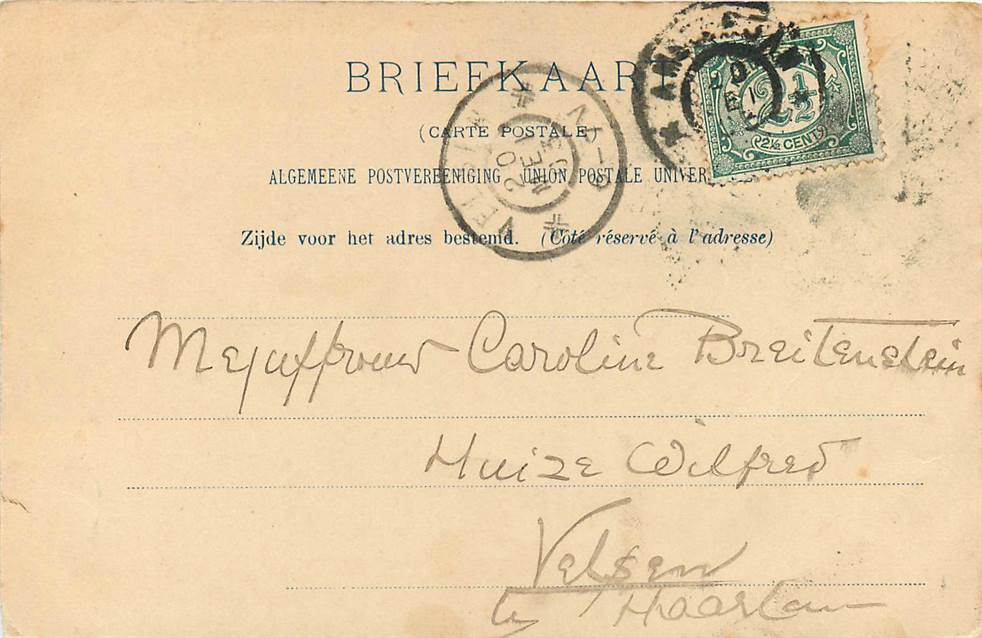 BRIEFKAART
(CARTE POSTALE)
ALGEMEENE POSTVEREENIGING UNION POSTALE UNIVER
Zijde voor het adres bestemd. (Côté réservé à l'adresse)
2½
2½ CENT
VEL
20 MEI 03
Mejuffrouw Caroline Breitenstein
Huize Wilfred
Velsen
by Haarlem